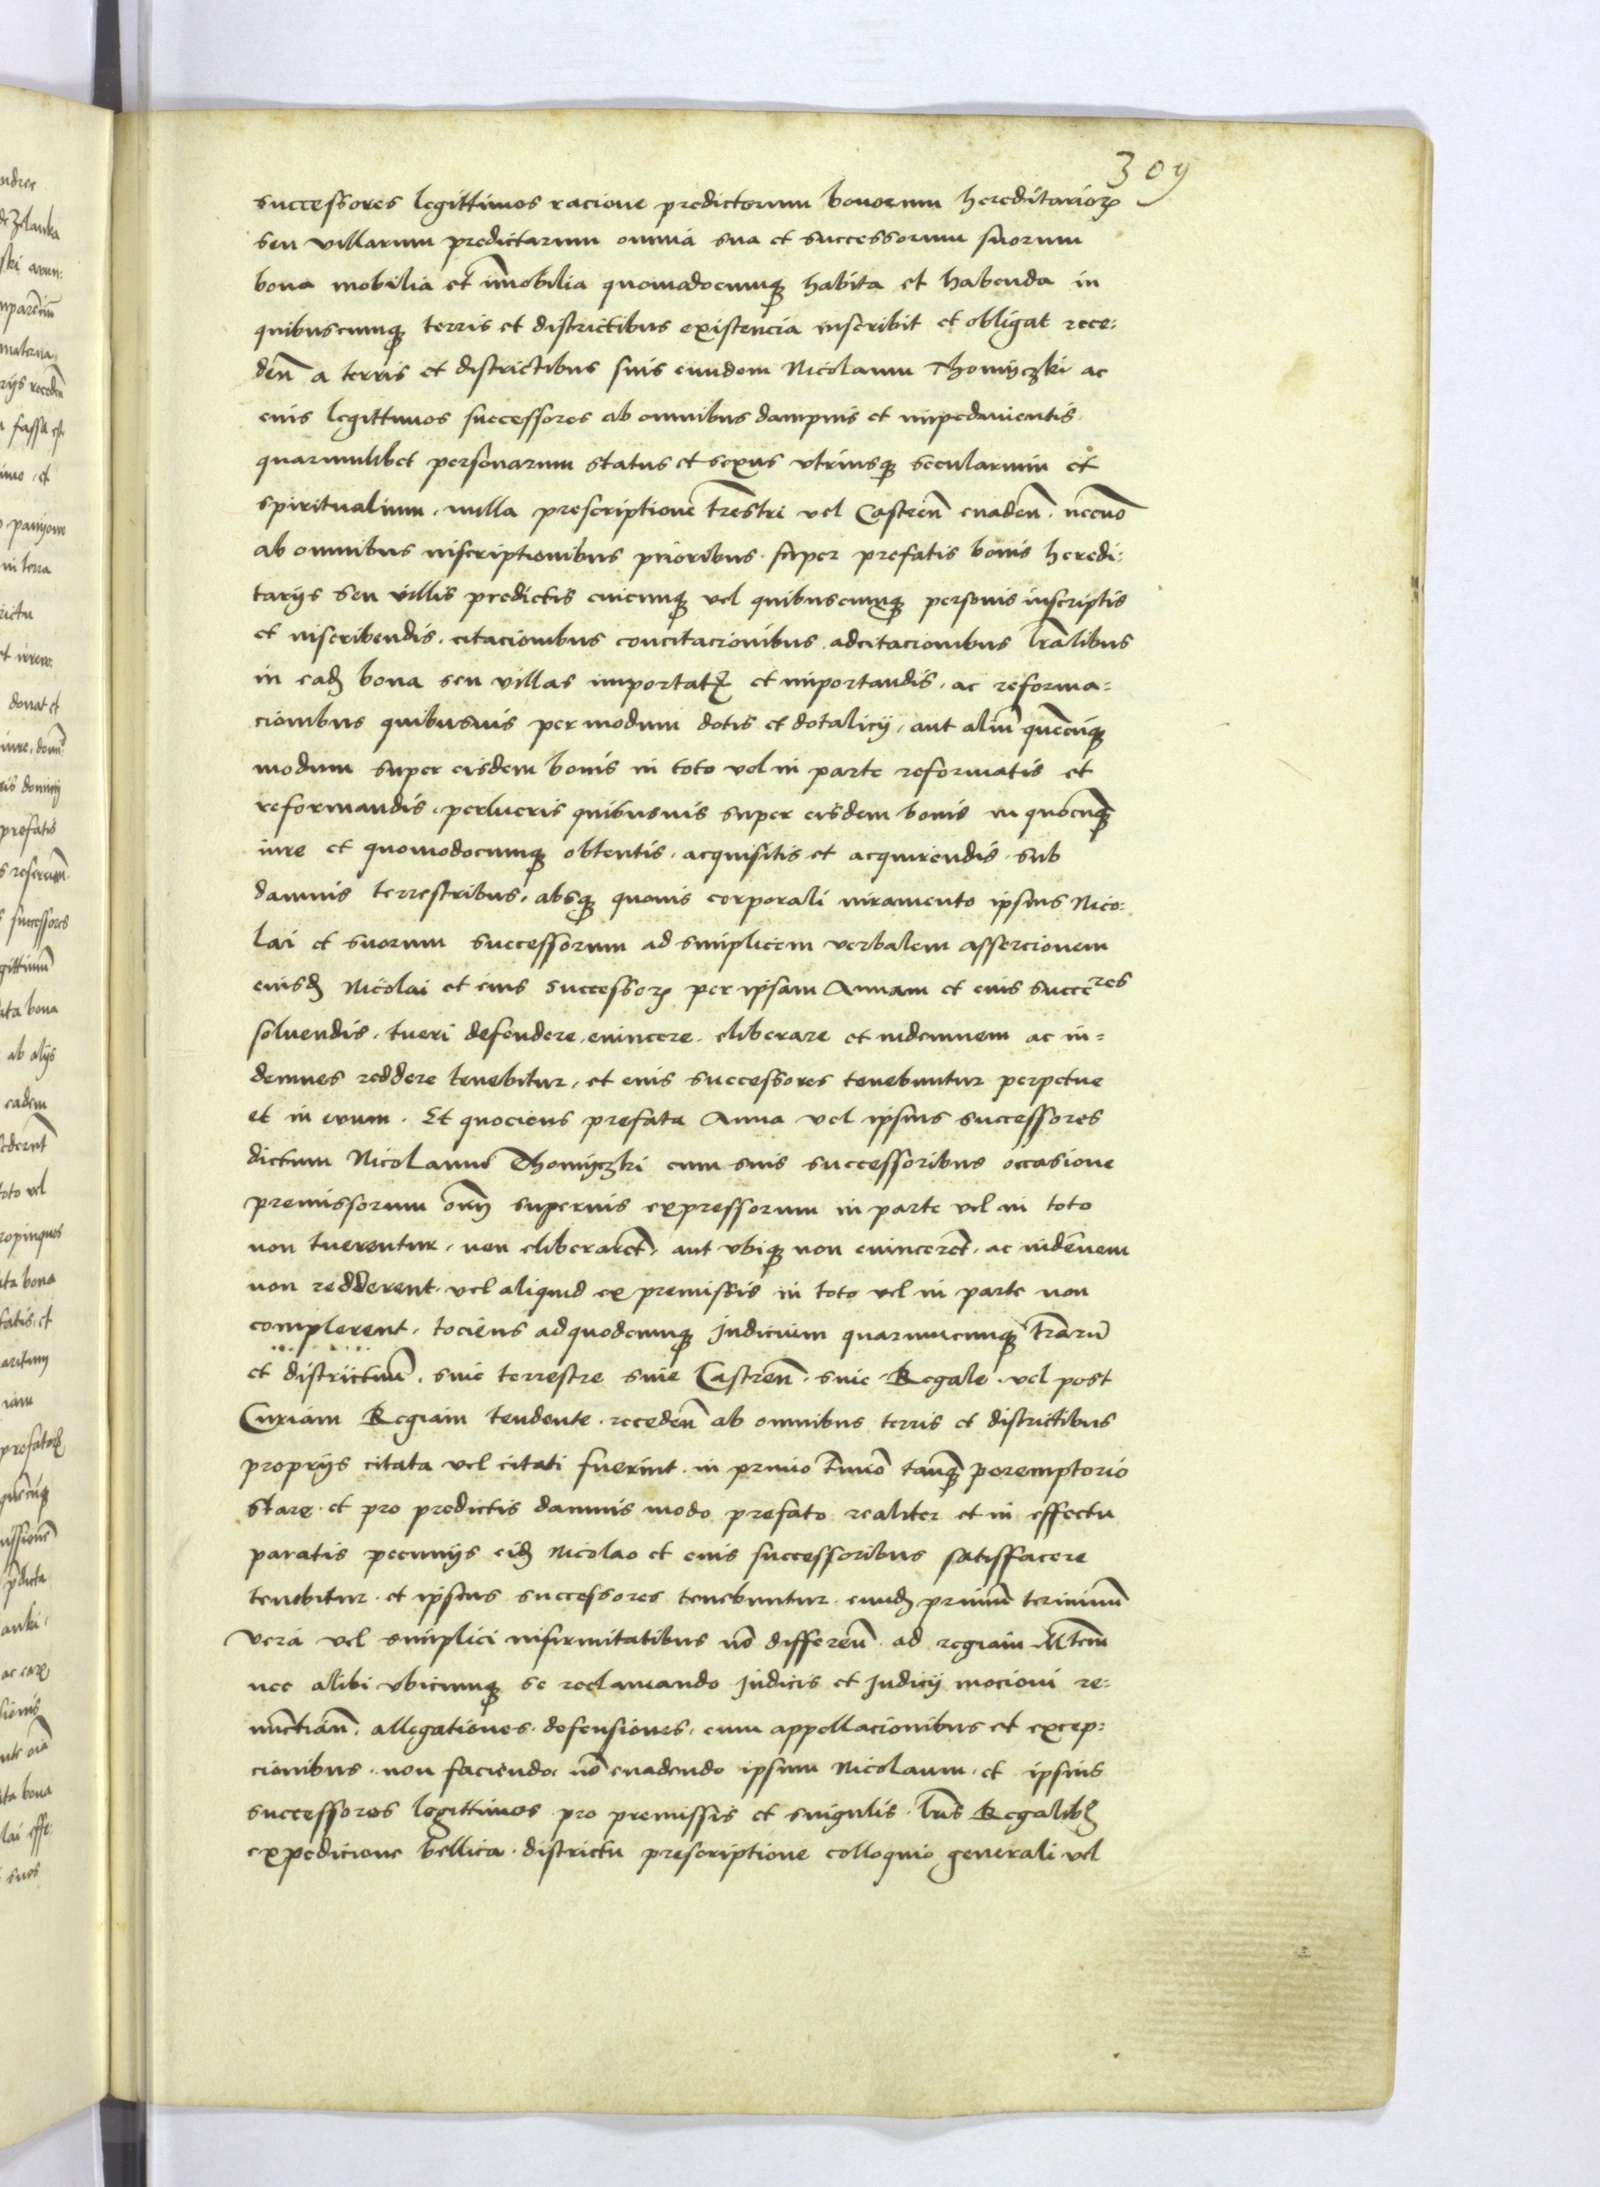 309
successores legittimos racione predictorum bonorum hereditarioꝝ
seu villarum predictarum omnia sua et successorum suorum
bona mobilia et im̄obilia quomodocumqꝫ habita et habenda in
quibuscumqꝫ terris et districtibus existencia inscribit et obligat rece:
deñ a terris et districtibus suis eundem Nicolaum Thomyczki ac
eius legittimos successores ab omnibus dampnis et impedimentis
quarumlibet personarum status et sexus vtriusqꝫ secularium et
spiritualium, nulla prescriptione tr̄estri vel Castreñ euadeñ, necnō
ab omnibus inscriptionibus prioribus super prefatis bonis heredi:
tarijs seu villis predictis cuicumqꝫ vel quibuscumqꝫ personis inscriptis
et inscribendis, citacionibus concitacionibus adcitacionibus lr̄alibus
in eadꝫ bona seu villas importatꝭ et importandis, ac reforma=
cionibus quibusuis per modum dotis et dotalicij, aut aliū quēcūqꝫ
modum super eisdem bonis in toto vel in parte reformatis et
reformandis, perlucris quibusuis super eisdem bonis in quocūqꝫ
iure et quomodocumqꝫ obtentis, acquisitis et acquirendis sub
damnis terrestribus, absqꝫ quouis corporali iuramento ipsius Nico:
lai et suorum successorum ad simplicem verbalem assercionem
eiusdꝫ Nicolai et eius successoꝝ per ipsam Annam et eius succeres
soluendis, tueri defendere, euincere, eliberare et indemnem ac in=
demnes reddere tenebitur, et eius successores tenebuntur perpetue
et in euum. Et quociens prefata Anna vel ipsius successores
dictum Nicolaum Thomyczki cum suis successoribus occasione
premissorum om̄ supernis expressorum in parte vel in toto
non tuerentur, non eliberarēt, aut vbiqꝫ non euincerēt, ac indēnem
non redderent, vel aliquid ex premissis in toto vel in parte non
complerent, tociens adquodcumqꝫ Judicium quarumcumqꝫ tr̄arū
et districtuū, siue terrestre siue Castreñ, siue Regale, vel post
Curiam Regiam tendente, recedeñ ab omnibus terris et districtibus
proprijs citata vel citati fuerint, in primo tr̄mīo tanqꝫ peremptorio
stare, et pro predictis damnis modo prefato realiter et in effectu
paratis pecunijs eidꝫ Nicolao et eius successoribus satisfacere
tenebitur, et ipsius successores tenebuntur, eundꝫ primū terminū
vera vel simplici infirmitatibus nō differeñ, ad regiam Mtem̄
nec alibi vbicumqꝫ se reclamando Judicis et Judicij mocioni re:
nunctiāñ, allegationes, defensiones, cum appellacionibus et excep:
cionibus, non faciendo, nō euadendo ipsum Nicolaum, et ipsius
successores legittimos pro premissis et singulis, lr̄is Regalibꝫ
expedicione bellica, districtu prescriptione colloquio generali vel